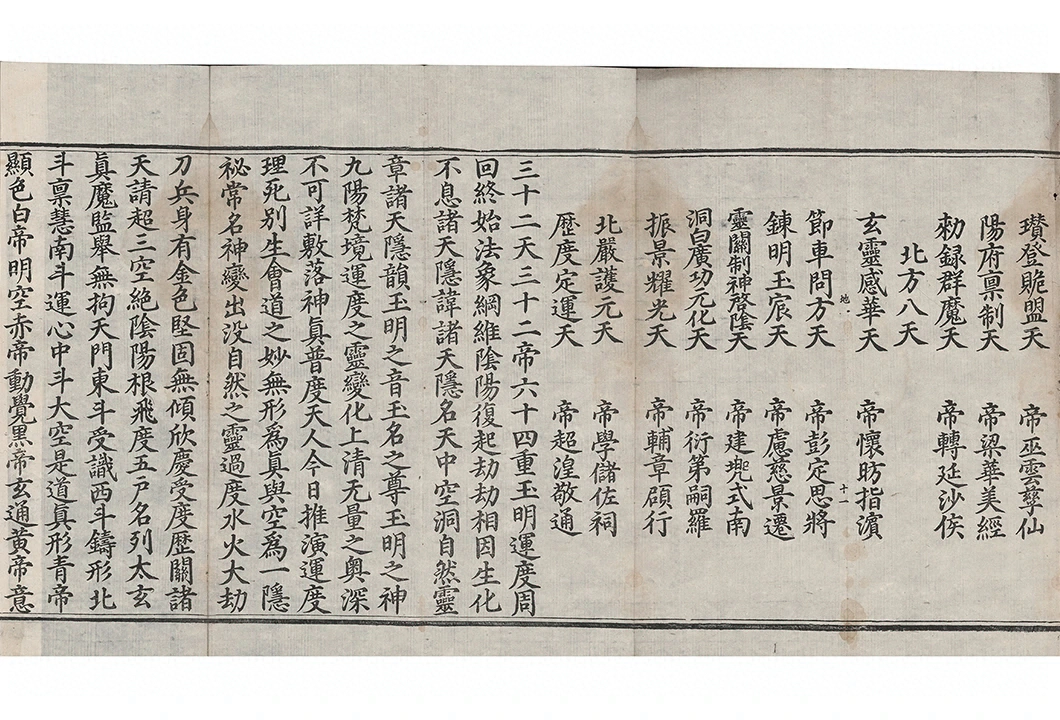 瓚登賟盟天　帝巫雲孳仙
陽府稟制天　帝梁華美經
勑録群魔天　帝轉延沙俟
北方八天
玄靈感華天　帝懷昉指濵
地　十一
節車問方天　帝彭定思將
錬明玉宸天　帝慮慈景遷
靈關制神啓陰天　帝建兠式南
洞白廣功元化天　帝衍第嗣羅
振景耀光天　帝輔章頋行
北嚴護元天　帝學儲佐祠
歴度定運天　帝超湟敬通
三十二天三十二帝六十四重玉明運度周
回終始法象綱維陰陽復起劫劫相因生化
不息諸天隱諱諸天隱名天中空洞自然靈
章諸天隱韻玉明之音玉名之尊玉明之神
九陽梵境運度之靈變化上清无量之奥深
不可詳敷落神眞普度天人今日推演運度
理死别生會道之妙無形爲眞與空爲一隱
祕常名神變出没自然之靈過度水火大劫
刀兵身有金色堅固無傾欣慶受度歴關諸
天請超三空絶陰陽根飛度五户名列太玄
眞魔監舉無拘天門東斗受識西斗鑄形北
斗禀慧南斗運心中斗大空是道眞形青帝
顯色白帝明空赤帝動覺黒帝玄通黄帝意